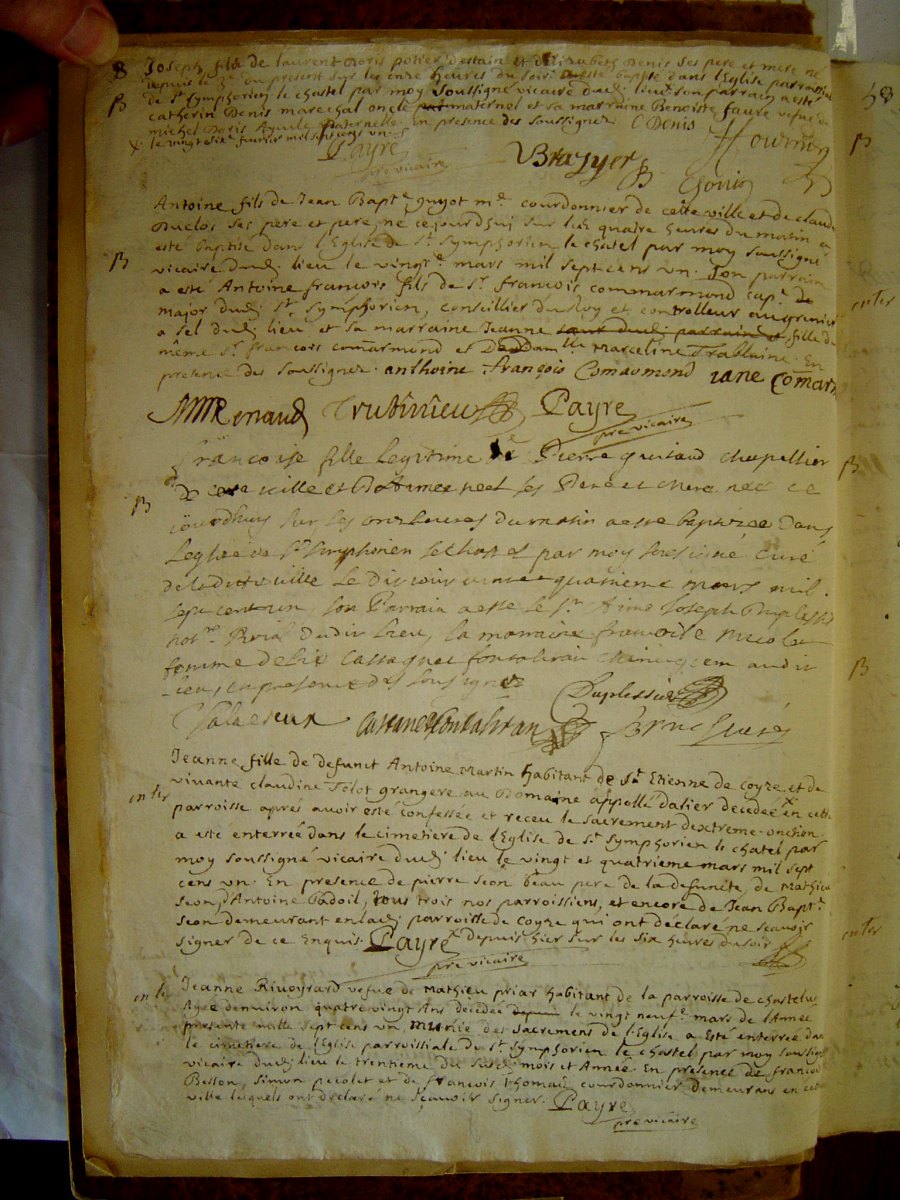 8 Joseph fils de laurent Boris potier destain et Elizabeth Denis ses pere et mere né
depuis le du present sur les onze heures du soir a esté baptisé dans l'Eglise parroissial
de St symphorien le chastel par moy soussigné vicaire dud. lieu son parrain a esté
B catherin Denis marechal oncle maternel et sa marraine Benoiste faure vefue de
michel Boris Ayeule paternelle en presance des soussignez C Denis
x le vingt six.e feurier mil sept cens vn.
Payre
pre vicaire
Brazyer
Antoine fils de Jean Bapt.e guyot m.e courdonnier de cette ville et de claud
Duclos ses pere et mere, né ce jourdhuy sur les quatre heures du matin a
esté baptisé dans l'Eglise de St. Symphorien le chatel par moy soussigné
B vicaire dud. lieu le vingt.e mars mil sept cens vn. Son parrain
a esté Antoine francois fils de Sr. francois commarmond cap.e de
major dud. St. Symphorien, conseillier du Roy et controlleur au grenier
a sel dud. lieu et sa marraine Jeanne soeur dud. parrain et fille du
même Sr. francois comarmond et de Dam.lle Marceline Trablaine. En
presence des soussignez. anthoine François Comarmond iane Comarm
Payre
pre vicaire
françoise fille legitime de Pierre guitaud chapellier
B de cette ville et ses Pere et Mere née ce
jourdhuy sur les onze heures du matin a esté baptizée dans
leglise de St Simphorien le chastel par moy soussigné curé
de la ditte ville le mars mil
sept cent un, son Parrain a esté le Sr. Aimé Joseph Duplessis
not.re Roial dudit Lieu, la marraine françoise Nicolas
femme de Sr Castanet fontalirau chirurgien audit
lieu, en presence des soussignez
Duplessis
Castanet fontaliran curé
Jeanne fille de defunct Antoine Martin habitant de St. Etienne de Coyze et de
enter vivante claudine Tolot grangere au Domaine appellé dalier decedée x en cette
parroisse aprés auoir esté confessée et receu le sacrement d'extreme-onction
a esté enterrée dans le cimetiere de l'Eglise de St. Symphorien le chatel par
moy soussigné vicaire dud. lieu le vingt et quatrieme mars mil sept
cens vn. En presence de pierre seon beau pere de la defuncte, de Mathieu
seon, d'Antoine Padoil, tous trois nos parroissiens, et encore de Jean Bapt.e
seon demeurant en lad. parroisse de Coyze qui ont déclaré ne scauoir
signer de ce enquis. Payre x depuis hier sur les six heures du soir
pre vicaire
enter Jeanne Riuoyrard vefue de Mathieu priar habitant de la parroisse de chastelus
Agée denuiron quatre vingt Ans decedée depuis le vingt neuf.e mars de l'Année
presente mille sept cens vn, munie des sacremens de l'Eglise a esté enterrée dans
le cimetiere de l'Eglise parroissiale de St. Symphorien le chastel par moy soussigné
vicaire dud. lieu le trentieme du susd. mois et Année. En presence de francois
Besson, Simon pecolet et de francois thomas courdonnier demeurans en cette
ville lesquels ont déclaré ne sçauoir signer. Payre
pre vicaire
58
B
enter
B
B
enter